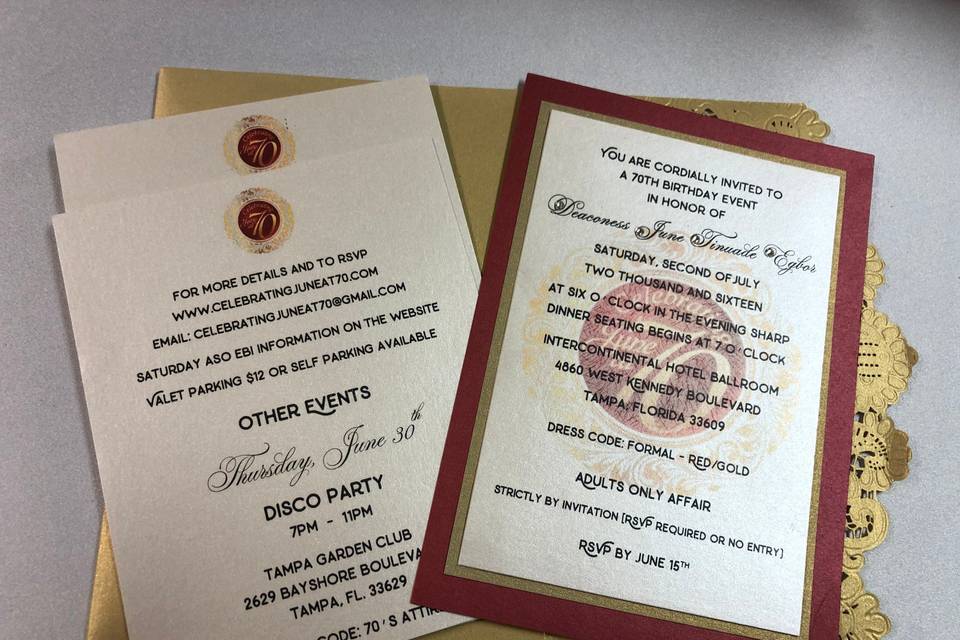 70
70
FOR MORE DETAILS AND TO RSVP
WWW.CELEBRATINGJUNEAT70.COM
EMAIL: CELEBRATINGJUNEAT70@GMAIL.COM
SATURDAY ASO EBI INFORMATION ON THE WEBSITE
VALET PARKING $12 OR SELF PARKING AVAILABLE
OTHER EVENTS
Thursday, June 30th
DISCO PARTY
7PM - 11PM
TAMPA GARDEN CLUB
2629 BAYSHORE BOULEVA
TAMPA, FL. 33629
CODE: 70'S ATTIR
YOU ARE CORDIALLY INVITED TO
A 70TH BIRTHDAY EVENT
IN HONOR OF
Deaconess June Tinuade Egbor
SATURDAY, SECOND OF JULY
TWO THOUSAND AND SIXTEEN
AT SIX O'CLOCK IN THE EVENING SHARP
DINNER SEATING BEGINS AT 7 O'CLOCK
INTERCONTINENTAL HOTEL BALLROOM
4860 WEST KENNEDY BOULEVARD
TAMPA, FLORIDA 33609
DRESS CODE: FORMAL - RED/GOLD
ADULTS ONLY AFFAIR
STRICTLY BY INVITATION [RSVP REQUIRED OR NO ENTRY]
RSVP BY JUNE 15TH